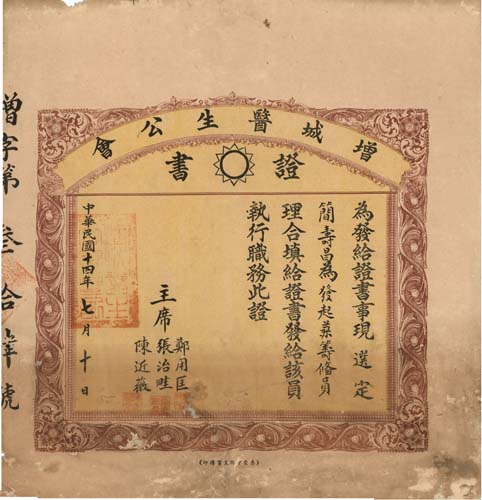 增城醫生公會
證書
為發給證書事現選定
簡壽昌為發起兼籌備員
理合填給證書發給該員
執行職務此證
主席
鄭用匡
張治畦
陳近薇
中華民國十四年七月十日
增字第叁拾肆號